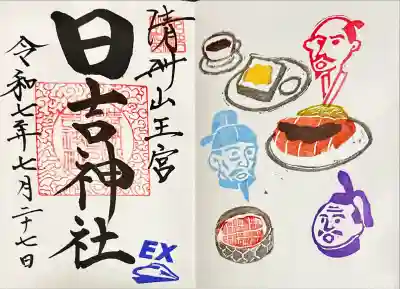 清州山王宮
日吉神社
令和七年七月二十七日
EX